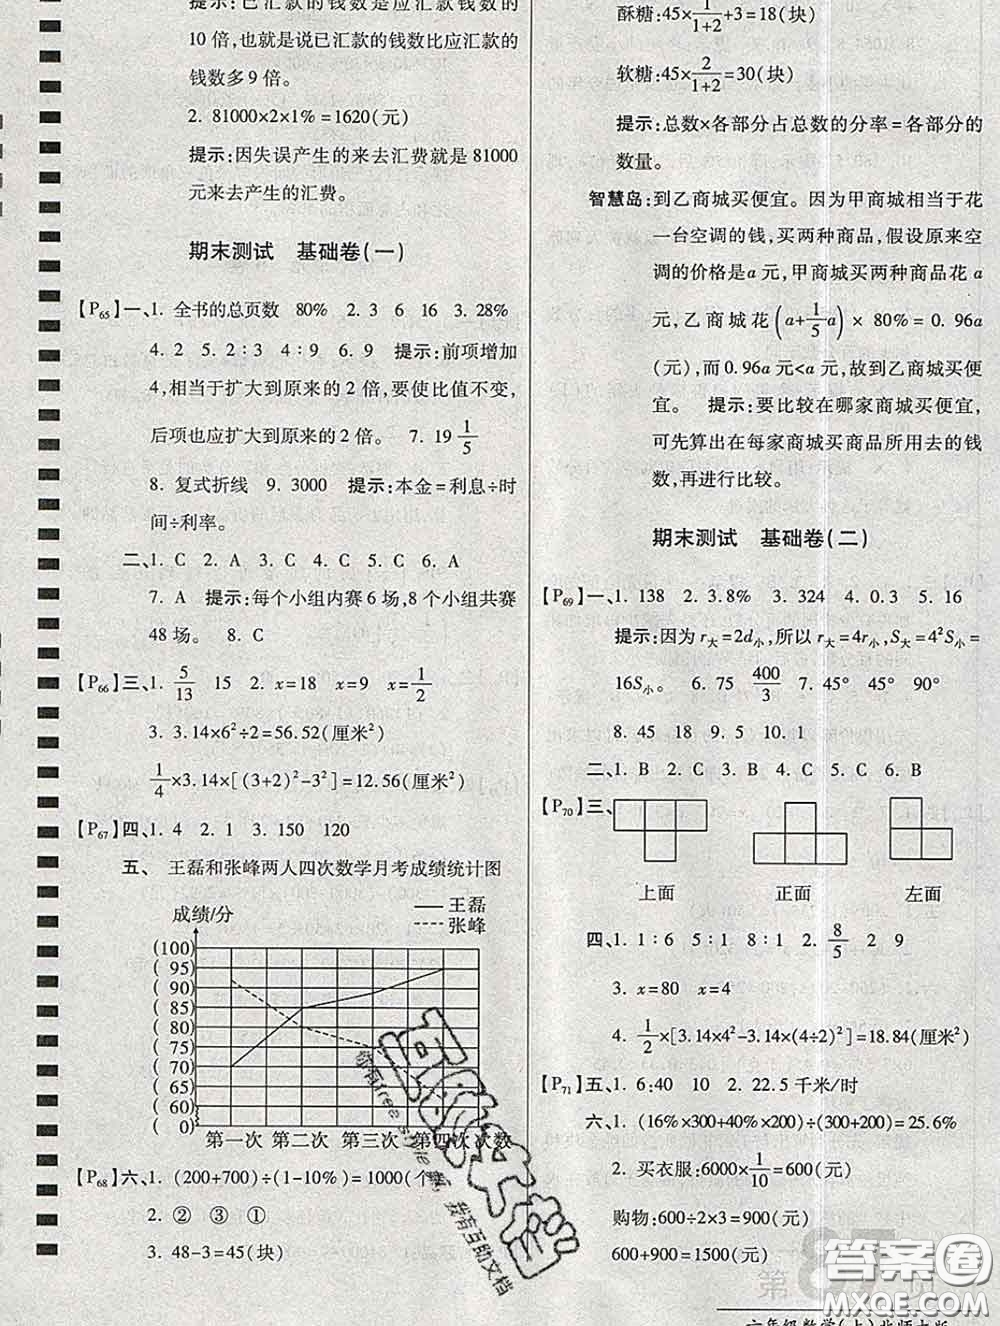 提示:已汇款的钱数是应汇款钱数的
10倍,也就是说已汇款的钱数比应汇款的
钱数多9倍。
2. 81000×2×1%=1620(元)
提示:因失误产生的来去汇费就是81000
元来去产生的汇费。
期末测试 基础卷(一)
【P65】一、1. 全书的总页数 80% 2. 3 6 16 3. 28%
4. 2 5. 2∶3 4∶9 6. 9 提示:前项增加
4,相当于扩大到原来的2倍,要使比值不变,
后项也应扩大到原来的2倍。 7. 19 1/5
8. 复式折线 9. 3000 提示:本金=利息÷时
间÷利率。
二、1. C 2. A 3. C 4. C 5. C 6. A
7. A 提示:每个小组内赛6场,8个小组共赛
48场。 8. C
【P66】三、1. 5/13 15 2. x=18 x=9 x=1/2
3. 3.14×6²÷2=56.52(厘米²)
1/4×3.14×[(3+2)²-3²]=12.56(厘米²)
【P67】四、1. 4 2. 1 3. 150 120
五、 王磊和张峰两人四次数学月考成绩统计图
成绩/分
王磊
张峰
(100)
( 95)
( 90)
( 85)
( 80)
( 75)
( 70)
( 65)
( 60)
( 0)
第一次 第二次 第三次 第四次 次数
【P68】六、1. (200+700)÷(1-10%)=1000(个)
2. ② ③ ①
3. 48-3=45(块)
酥糖:45×1/(1+2)+3=18(块)
软糖:45×2/(1+2)=30(块)
提示:总数×各部分占总数的分率=各部分的
数量。
智慧岛:到乙商城买便宜。因为甲商城相当于花
一台空调的钱,买两种商品,假设原来空
调的价格是a元,甲商城买两种商品花a
元,乙商城花(a+1/5a)×80%=0.96a
(元),而0.96a元<a元,故到乙商城买便
宜。 提示:要比较在哪家商城买便宜,
可先算出在每家商城买商品所用去的钱
数,再进行比较。
期末测试 基础卷(二)
【P69】一、1. 138 2. 3.8% 3. 324 4. 0.3 5. 16
提示:因为r大=2d小,所以r大=4r小,S大=4²S小=
16S小。 6. 75 400/3 7. 45° 45° 90°
8. 45 18 9. 5 10. 1
二、1. B 2. C 3. B 4. C 5. C 6. B
【P70】三、
上面 正面 左面
四、1. 1∶6 5∶1 8∶1 2. 8/5 2 9
3. x=80 x=4
4. 1/2×[3.14×4²-3.14×(4÷2)²]=18.84(厘米²)
【P71】五、1. 6:40 10 2. 22.5千米/时
六、1. (16%×300+40%×200)÷(300+200)=25.6%
2. 买衣服:6000×1/10=600(元)
购物:600÷2×3=900(元)
600+900=1500(元)
第87页
六年级数学(上)北师大版
答案圈
MXQE.COM